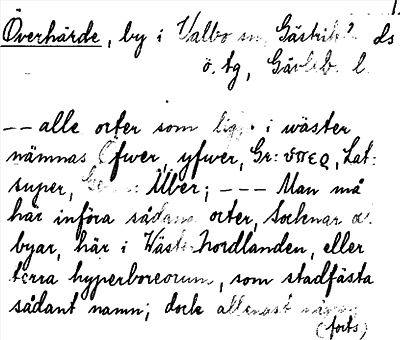 Överhärde, by i Valbo sn, Gästrikl. ds
ö. tg, Gävleb. l.
-- alle orter som ligga i wäster
nämnas Öfwer, yfwer, Gr: ὑπερ, Lat:
super, Uber; --- Man må
här införa sådana orter, Socknar
byar, här i Wäster Nordlanden, eller
terra hyperboreorum, som stadfästa
sådant namn; dock allenast några
(forts)